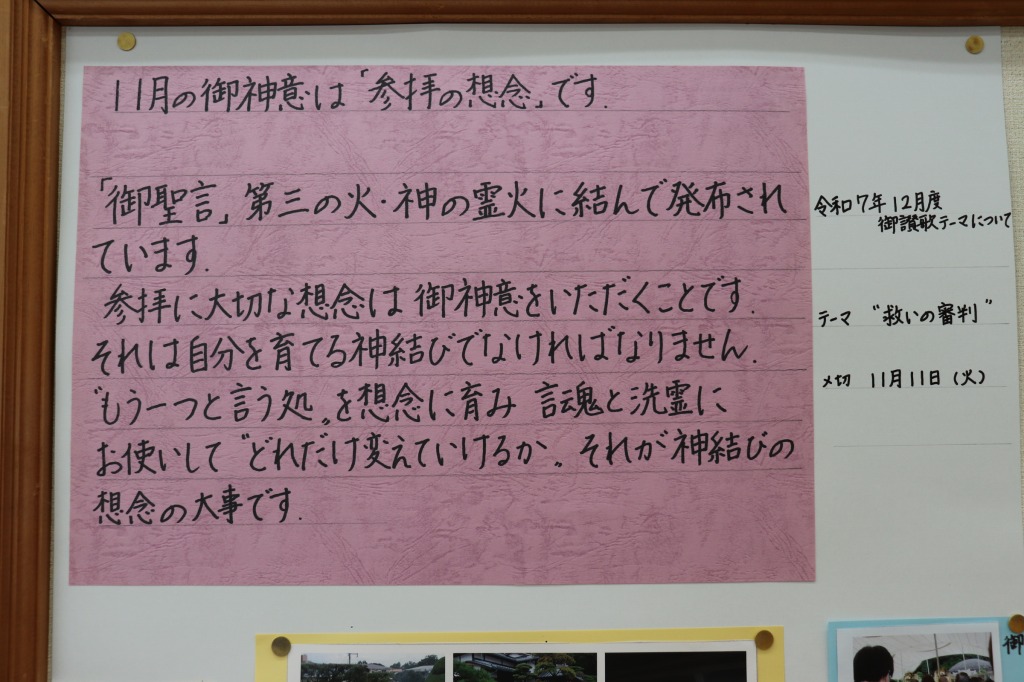 11月の御神意は「参拝の想念」です.
「御聖言」第三の火・神の霊火に結んで発布され
ています.
参拝に大切な想念は 御神意をいただくことです.
それは自分を育てる神結びでなければなりません.
〝もう一つと言う処〟を想念に育み 言魂と洗霊に
お使いして〝どれだけ変えていけるか〟それが神結びの
想念の大事です.
令和7年12月度
御讃歌テーマについて
テーマ “救いの審判”
〆切 11月11日(火)
御